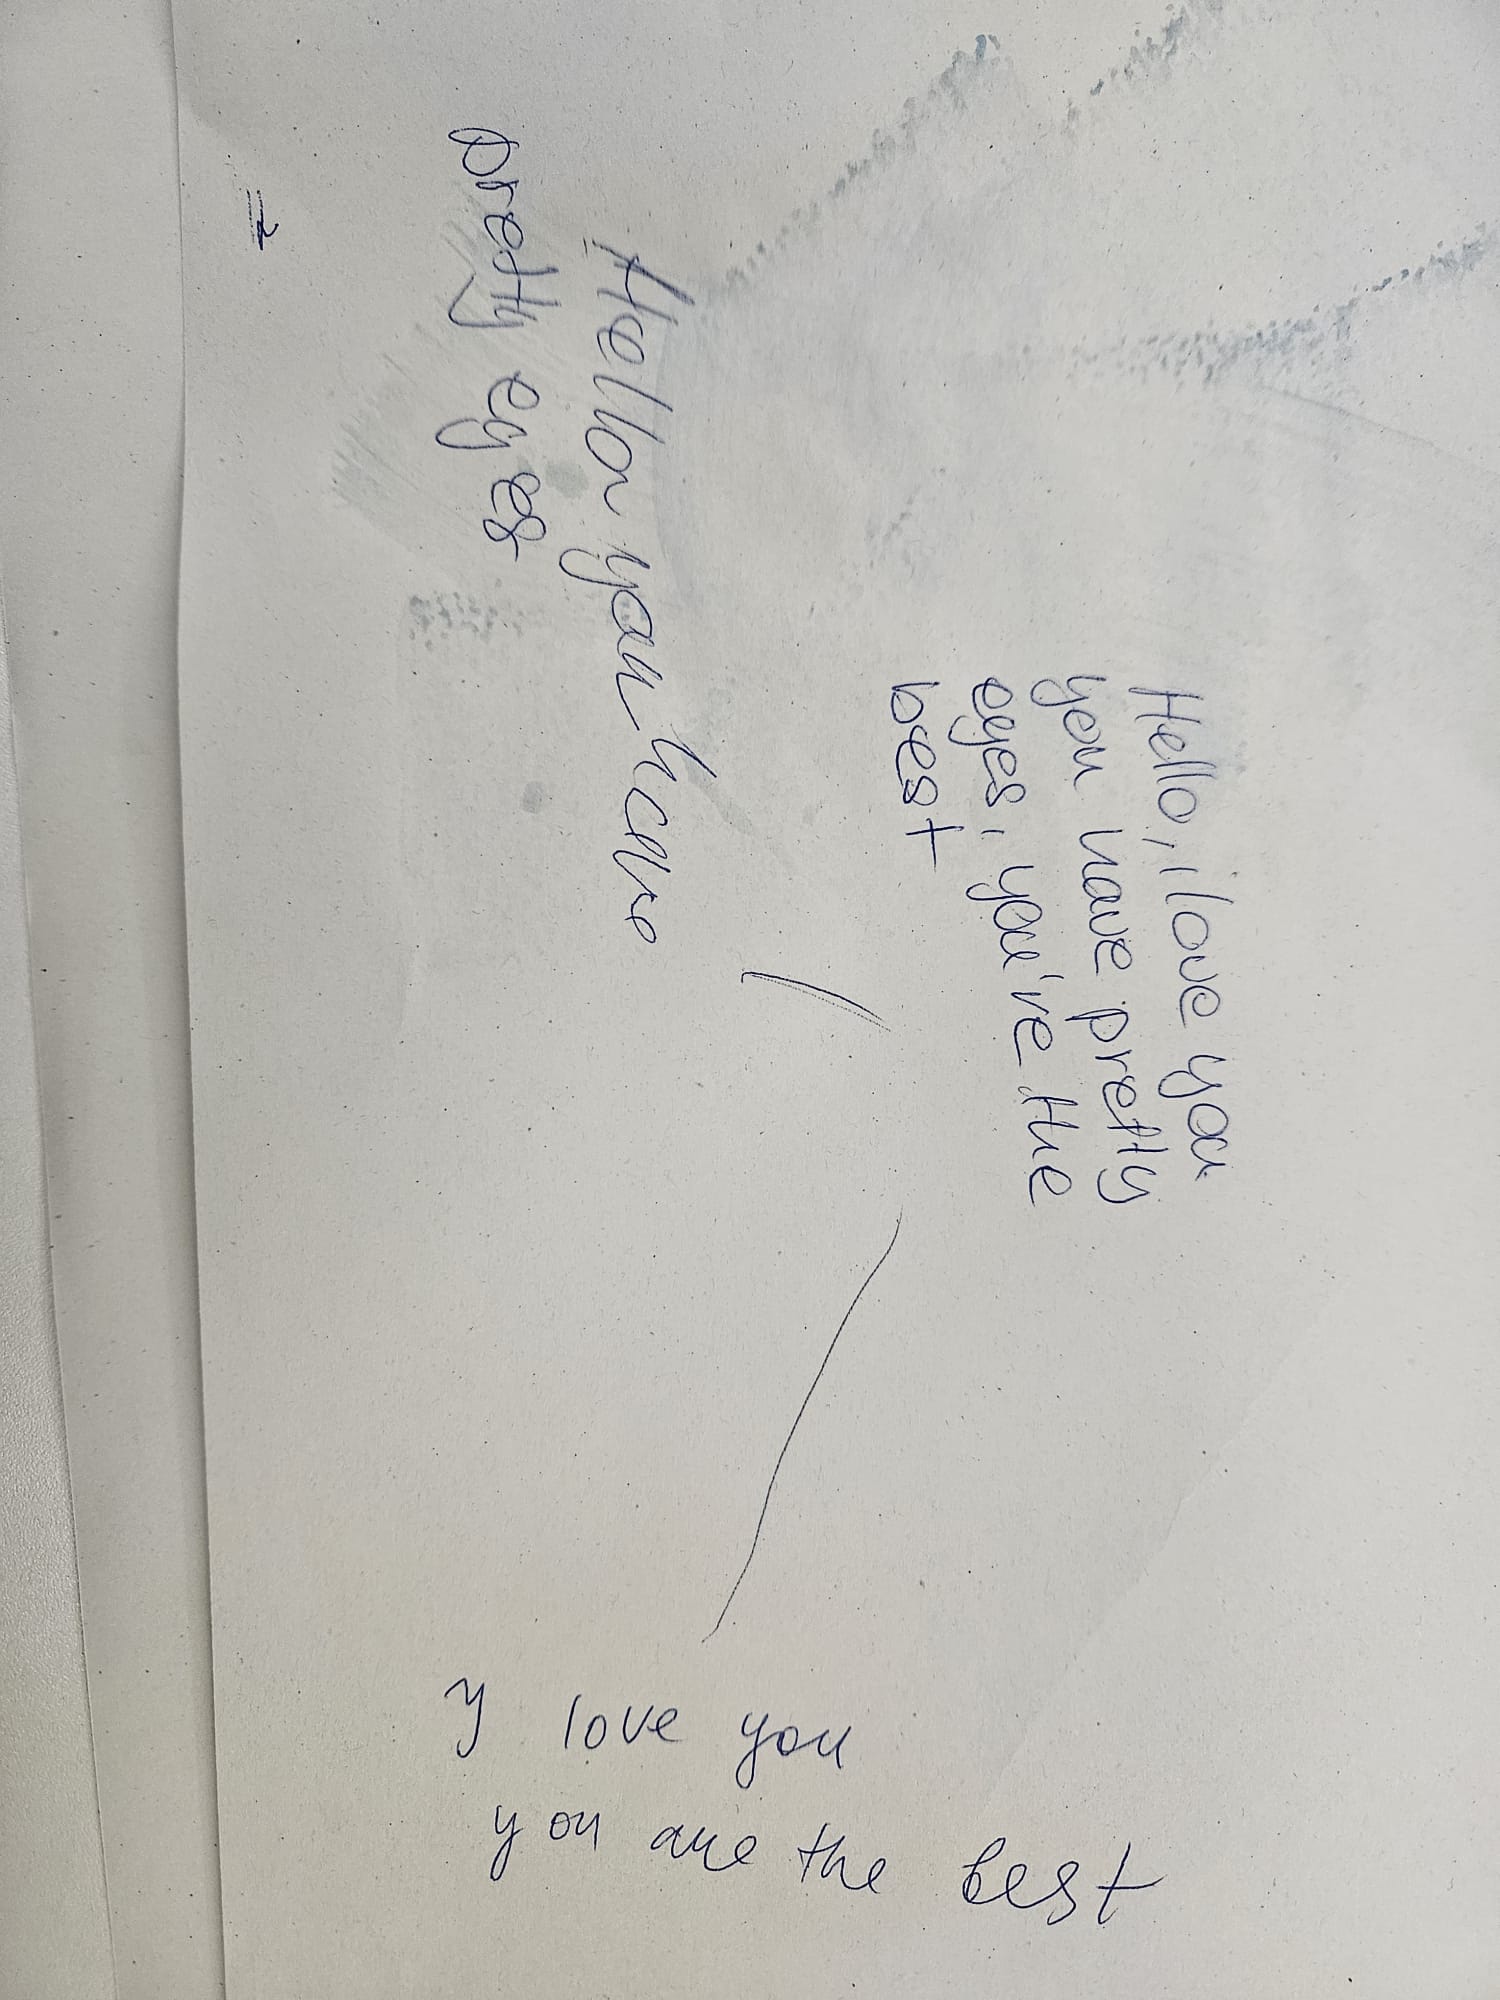 Hello, i love you
you have pretty
eyes, you're the
best
Hello you have
pretty eyes
y love you
you are the best